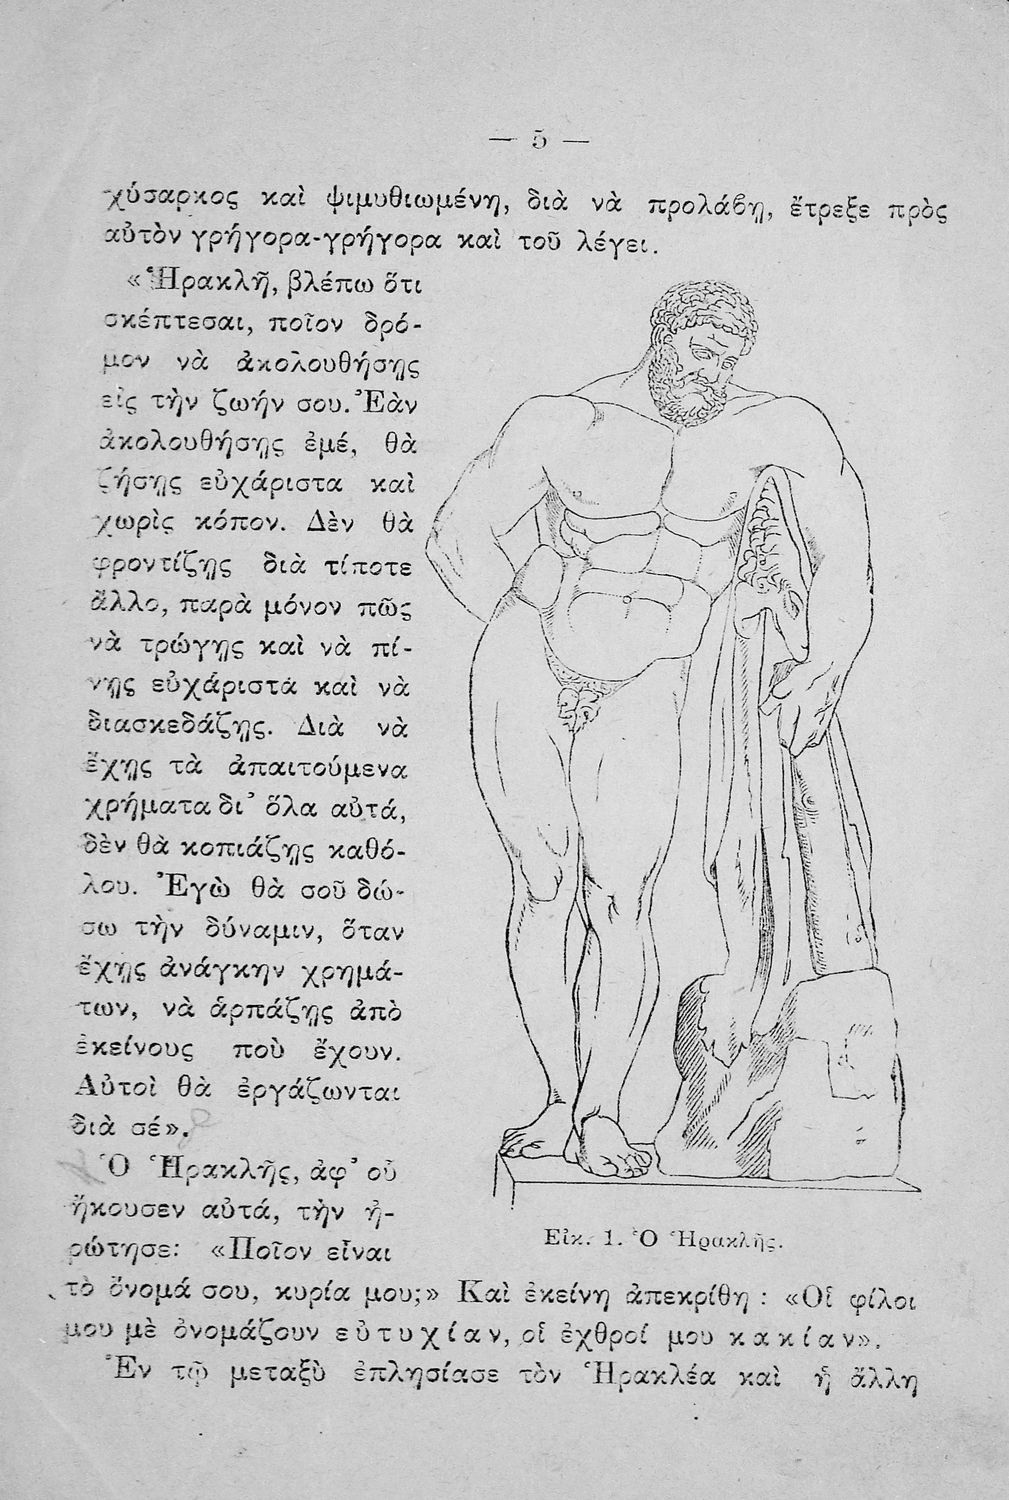 — 5 —
χύσαρκος καὶ ψιμυθιωμένη, διὰ νὰ προλάβῃ, ἔτρεξε πρὸς
αὐτὸν γρήγορα-γρήγορα καὶ τοῦ λέγει.
«Ἡρακλῆ, βλέπω ὅτι
σκέπτεσαι, ποῖον δρό-
μον νὰ ἀκολουθήσῃς
εἰς τὴν ζωήν σου. Ἐὰν
ἀκολουθήσῃς ἐμέ, θὰ
ζήσῃς εὐχάριστα καὶ
χωρὶς κόπον. Δὲν θὰ
φροντίζῃς διὰ τίποτε
ἄλλο, παρὰ μόνον πῶς
νὰ τρώγῃς καὶ νὰ πί-
νῃς εὐχάριστα καὶ νὰ
διασκεδάζῃς. Διὰ νὰ
ἔχῃς τὰ ἀπαιτούμενα
χρήματα δι᾿ ὅλα αὐτά,
δὲν θὰ κοπιάζῃς καθό-
λου. Ἐγὼ θὰ σοῦ δώ-
σω τὴν δύναμιν, ὅταν
ἔχῃς ἀνάγκην χρημά-
των, νὰ ἁρπάζῃς ἀπὸ
ἐκείνους ποὺ ἔχουν.
Αὐτοὶ θὰ ἐργάζωνται
διὰ σέ».
Ὁ Ἡρακλῆς, ἀφ᾿ οὗ
ἤκουσεν αὐτά, τὴν ἠ-
ρώτησε: «Ποῖον εἶναι
τὸ ὄνομά σου, κυρία μου;» Καὶ ἐκείνη ἀπεκρίθη : «Οἱ φίλοι
μου μὲ ὀνομάζουν εὐτυχίαν, οἱ ἐχθροί μου κακίαν».
Ἐν τῷ μεταξὺ ἐπλησίασε τὸν Ἡρακλέα καὶ ἡ ἄλλη
Εἰκ. 1. Ὁ Ἡρακλῆς.